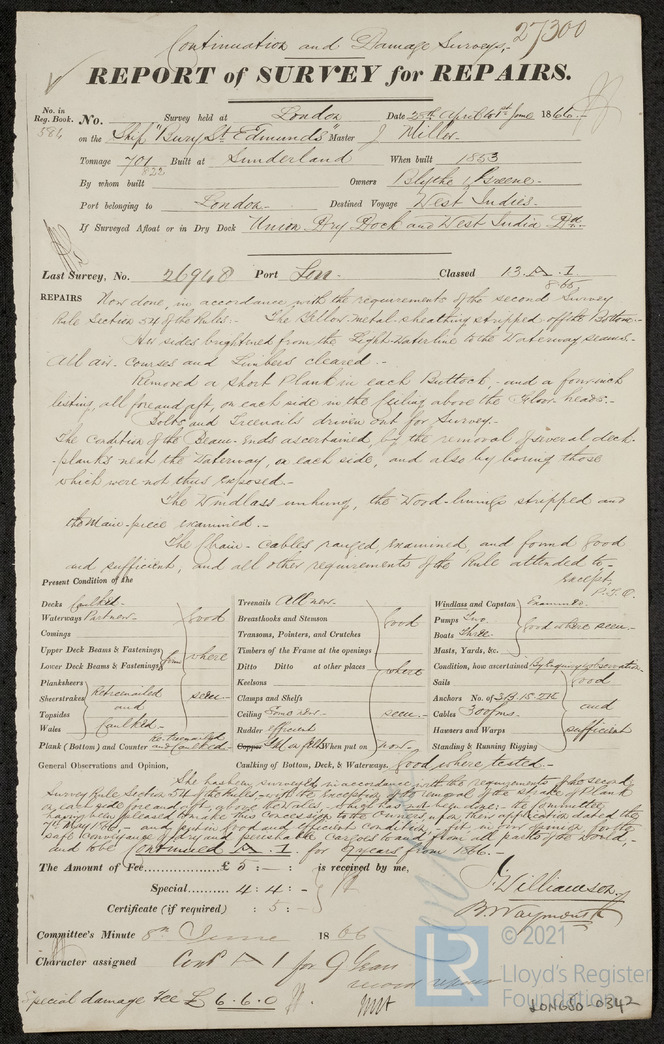 27300
Continuation and Damage Surveys.
REPORT of SURVEY for REPAIRS.
No. in Reg. Book. 584 No. Survey held at London Date 28th April to 1st June 1866.
on the Ship "Bury St Edmunds" Master J Miller
Tonnage 701 822 Built at Sunderland When built 1853
By whom built Owners Blythe & Greene
Port belonging to London Destined Voyage West Indies
If Surveyed Afloat or in Dry Dock Union Dry Dock and West India Dk
Last Survey, No. 26948 Port Lon Classed 13 A 1 8.66
REPAIRS Now done, in accordance with the requirements of the second Survey
Rule Section 54 of the Rules. The Yellow-metal sheathing stripped off the Bottom.
Her sides brightened from the Light-Waterline to the Waterway seams.
All air-courses and Limbers cleared.
Removed a short Plank in each Buttock, and a four-inch
listing, all fore and aft, on each side in the ceiling above the Floor-heads.
Bolts and Treenails driven out for Survey.
The Condition of the Beam-Ends ascertained, by the removal of several deck-
planks next the Waterway, on each side, and also by boring those
which were not thus exposed.
The Windlass unhung, the Wood-linings stripped and
the Main-piece examined.
The Chain-Cables ranged, examined, and found good
and sufficient, and all other requirements of the Rule attended to,
except, P.T.O.
Present Condition of the
Decks Caulked
Waterways Part new
Comings
Upper Deck Beams & Fastenings
Lower Deck Beams & Fastenings found
Planksheers
Sheerstrakes
Topsides
Wales
Retreenailed and Caulked
Plank (Bottom) and Counter re-treenailed and Caulked
good where seen
Treenails All new
Breasthooks and Stemson
Transoms, Pointers, and Crutches
Timbers of the Frame at the openings
Ditto Ditto at other places
Keelsons
Clamps and Shelfs
Ceiling Some new
Rudder efficient
Copper YM on felt When put on now
good where seen
Windlass and Capstan Examined
Pumps Two
Boats Three
Masts, Yards, &c.
good where seen
Condition, how ascertained By enquiry & observation
Sails
Anchors No. of 3B.1S.2K
Cables 300fms
Hawsers and Warps
Standing & Running Rigging
Good and sufficient
Caulking of Bottom, Deck, & Waterways. Good where tested.
General Observations and Opinion,
She has been surveyed in accordance with the requirements of the second
Survey Rule Section 54 of the Rules, with the exception of the removal of the strake of Plank
on each side fore and aft, above the Wales, which has not been done; the Committee
having been pleased to make this Concession to the Owners upon their application dated the
7th May 1866, and being in good and efficient Condition, & fit in our opinion for the
safe conveyance of dry and perishable Cargoes to and from all parts of the World,
and to be Continued A 1 for 9 years from 1866.
The Amount of Fee £ 5 : — : is received by me,
Special 4 : 4 : -
Certificate (if required) : 5 : -
J. Williamson
B. Waymouth
Committee's Minute 8th June 1866
Character assigned Cont A 1 for 9 Years
second repair
Special damage Fee £ 6.6.0
LR © 2021
Lloyd's Register
Foundation
LONG50-0342